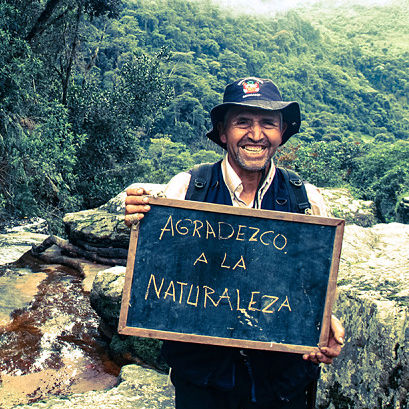 AGRADEZCO
A LA
NATURALEZA